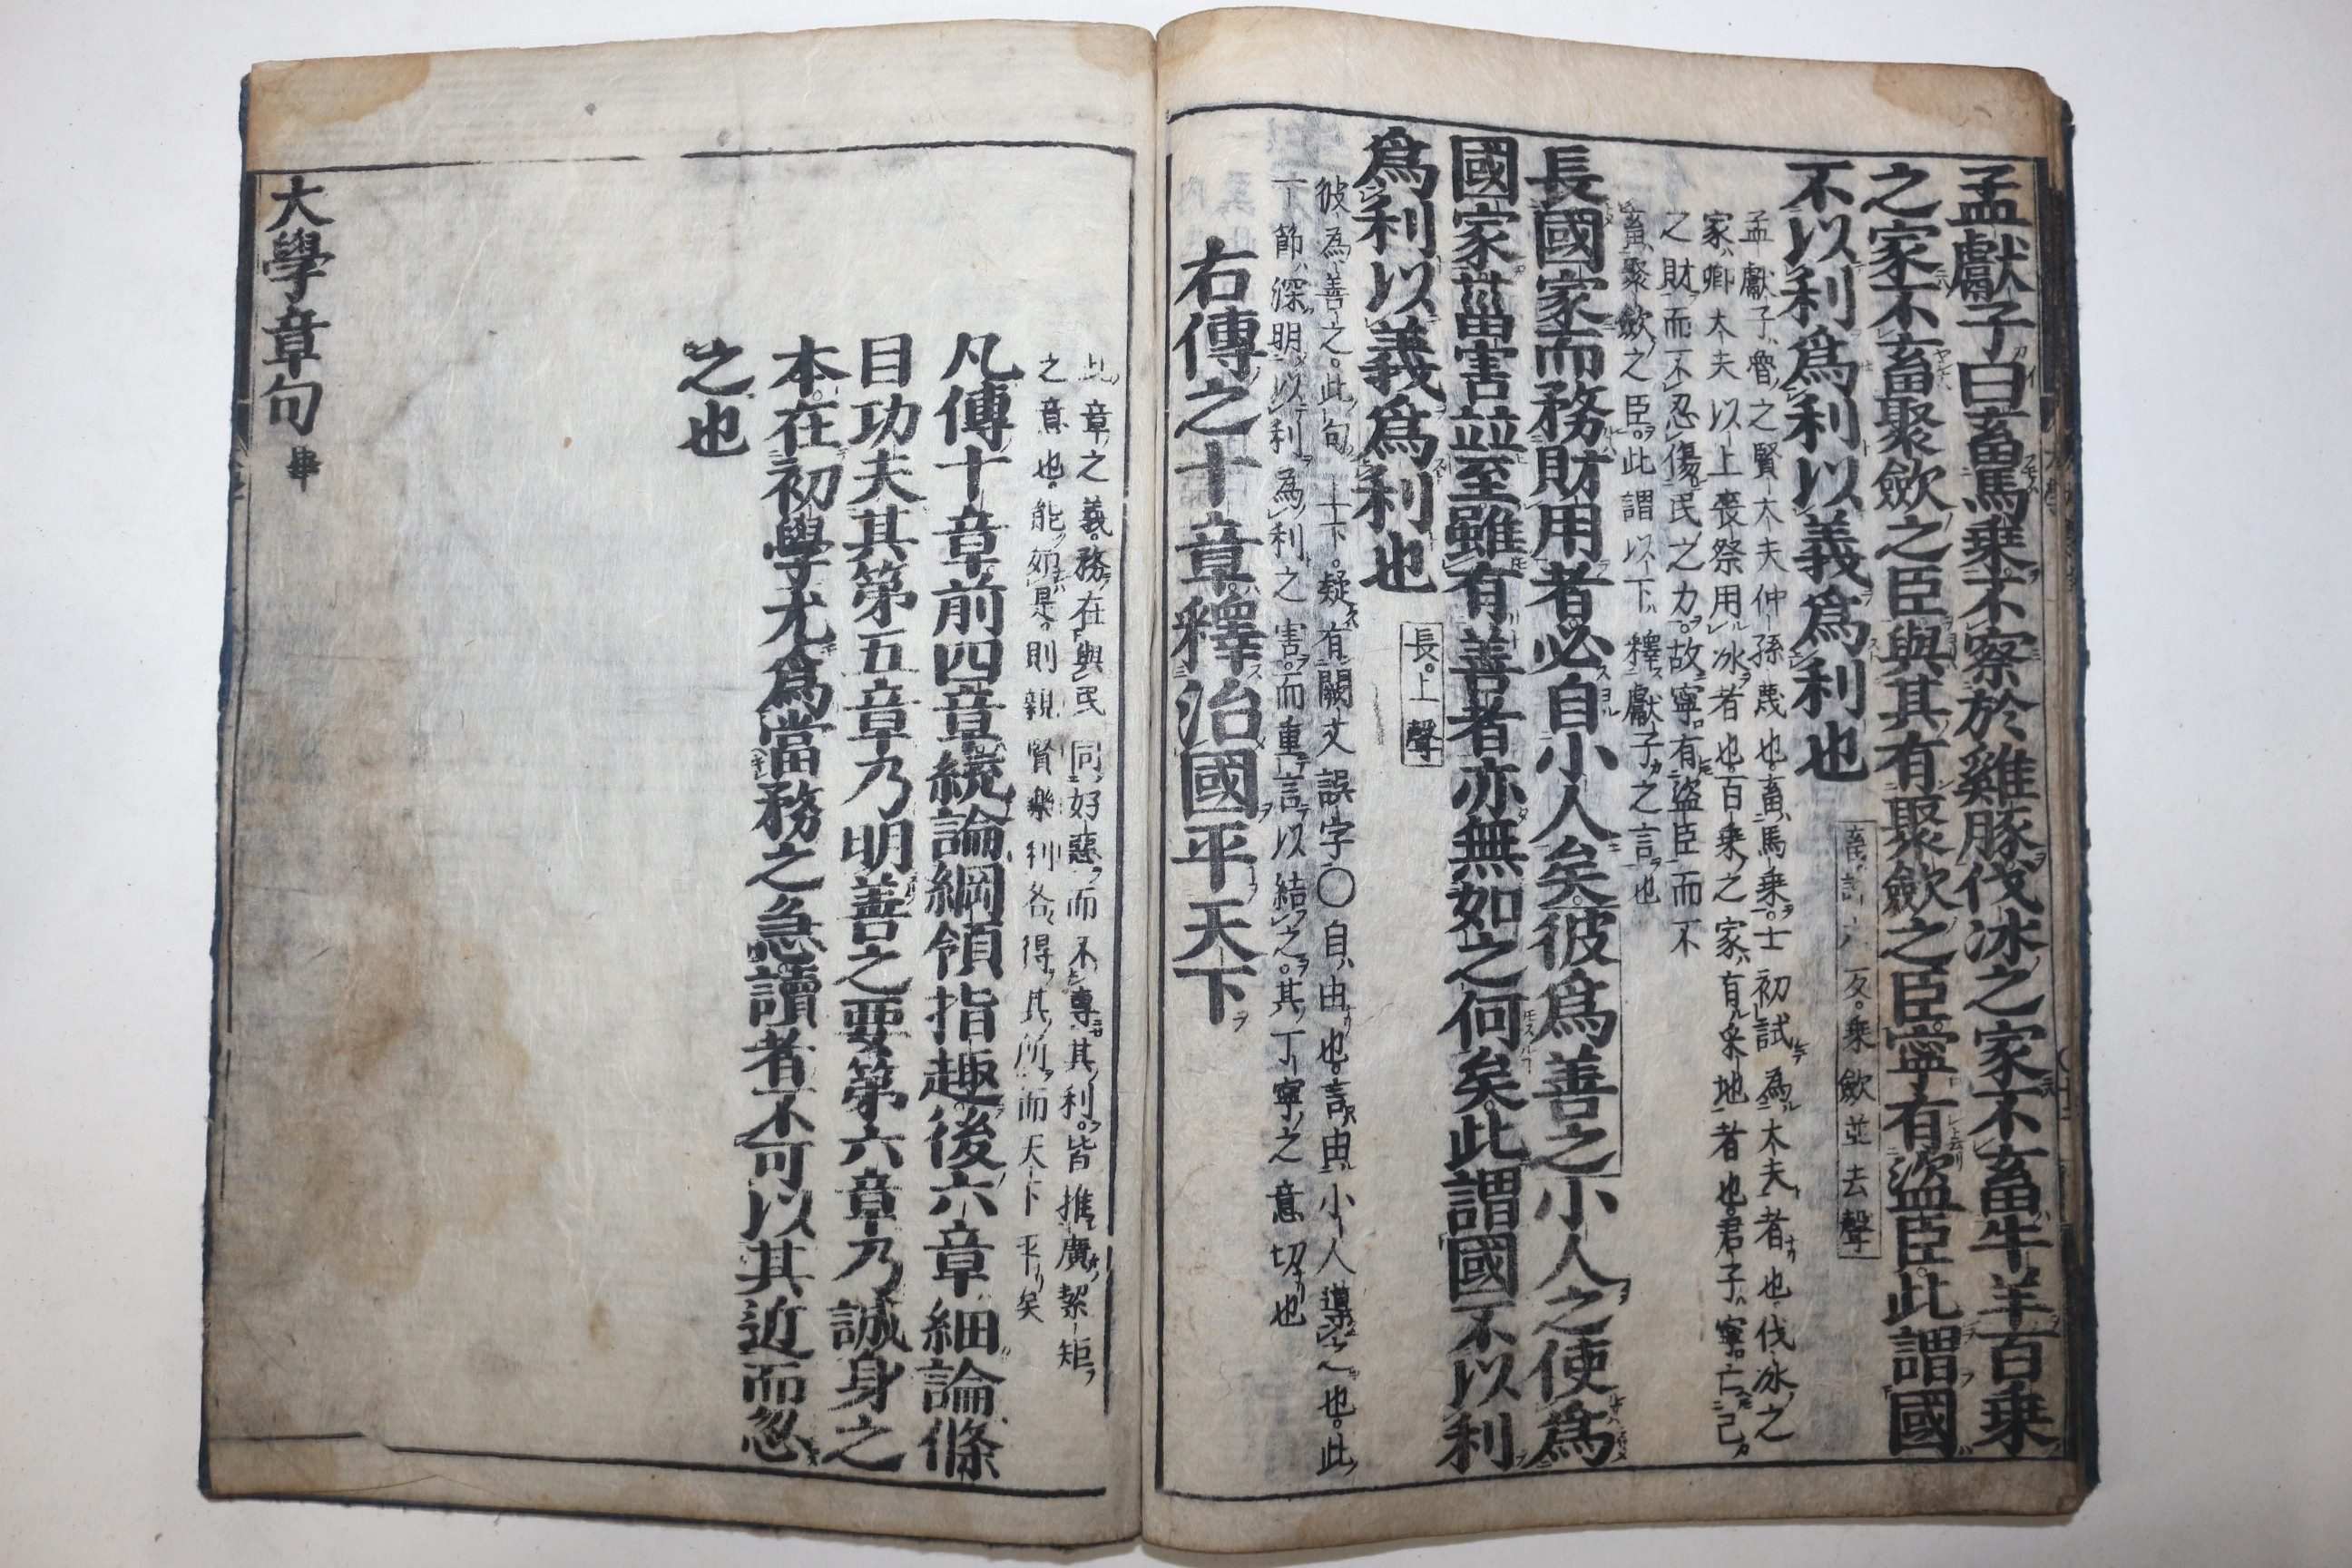 孟獻子曰畜馬乗不察於雞豚伐冰之家不畜牛羊百乗
之家不畜聚斂之臣與其有聚斂之臣寧有盜臣此謂國
不以利爲利以義爲利也
畜許六反。乗斂並去聲
孟獻子魯之賢大夫仲孫蔑也畜馬乗。士初試為大夫者也伐冰之
家卿大夫以上喪祭用冰者也百乗之家有采地者也君子寧亡己
之財而不忍傷民之力。故寧有盜臣而不
畜聚斂之臣此謂以下釋獻子之言也
長國家而務財用者必自小人矣彼爲善之小人之使爲
國家菑害並至雖有善者亦無如之何矣此謂國不以利
爲利以義爲利也
長。上聲
彼為善之。此句上下。疑有闕文誤字〇自由也。言由小人導之也。此
一節深明以利為利之害。而重言以結之。其丁寧之意切也
右傳之十章釋治國平天下
此章之義。務在與民同好惡而不專其利。皆推廣絜矩
之意也。能如是。則親賢樂利各得其所而天下平矣
凡傳十章前四章統論綱領指趣後六章細論條
目功夫其第五章乃明善之要第六章乃誠身之
本在初學尤爲當務之急讀者不可以其近而忽
之也
大學章句畢